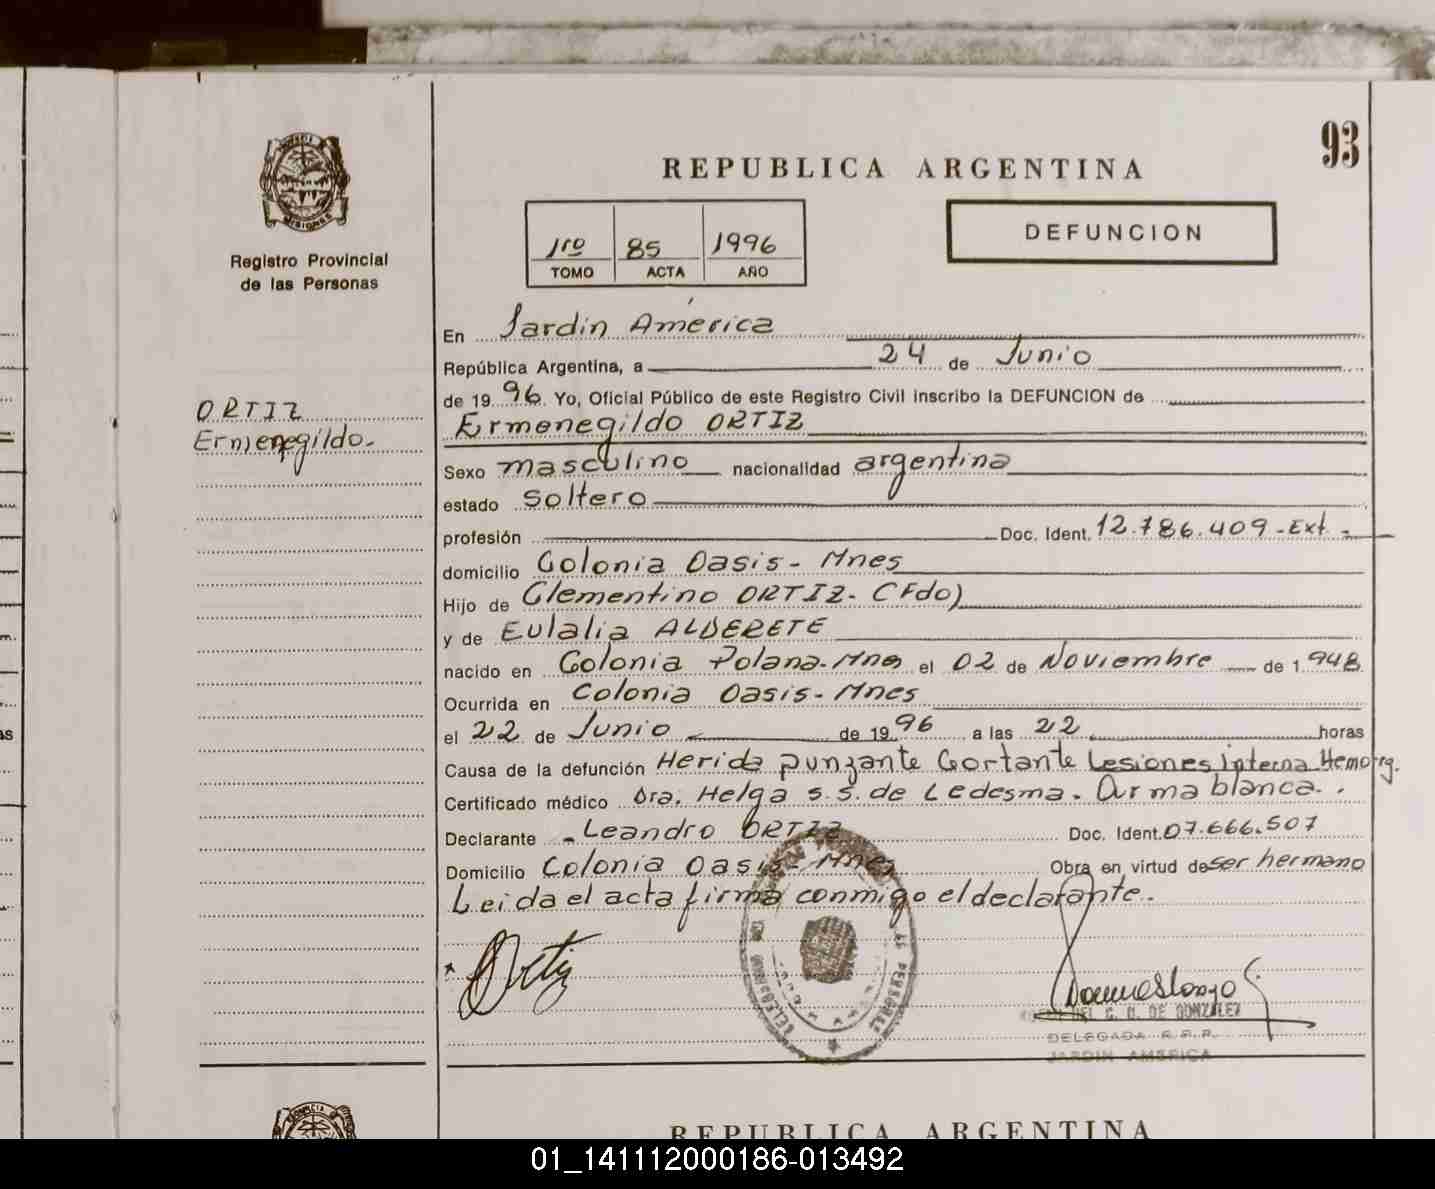 93
REPUBLICA ARGENTINA
PROVINCIA
MISIONES
Registro Provincial
de las Personas
1ro 85 1996
TOMO ACTA AÑO
DEFUNCION
ORTIZ
Ermenegildo.
En Jardín América
República Argentina, a 24 de Junio
de 1996. Yo, Oficial Público de este Registro Civil inscribo la DEFUNCION de
Ermenegildo ORTIZ
Sexo masculino nacionalidad argentina
estado soltero
profesión Doc. Ident. 12.786.409-Ext.-
domicilio Colonia Oasis-Mnes
Hijo de Clementino ORTIZ-(Fdo)
y de Eulalia ALDERETE
nacido en Colonia Polana-Mnes el 02 de Noviembre de 1.948
Ocurrida en Colonia Oasis-Mnes
el 22 de Junio de 1996 a las 22 horas
Causa de la defunción Herida punzante Cortante Lesiones interna Hemorg.
Certificado médico Dra. Helga S.S. de Ledesma. Arma blanca..
Declarante -Leandro ORTIZ Doc. Ident. 07.666.507
Domicilio Colonia Oasis-Mnes Obra en virtud de ser hermano
Leida el acta firma conmigo el declarante.
Ortiz
DEL C. D. DE GONZALEZ
DELEGADA R.P.P.
JARDIN AMERICA
REPUBLICA ARGENTINA
01_141112000186-013492